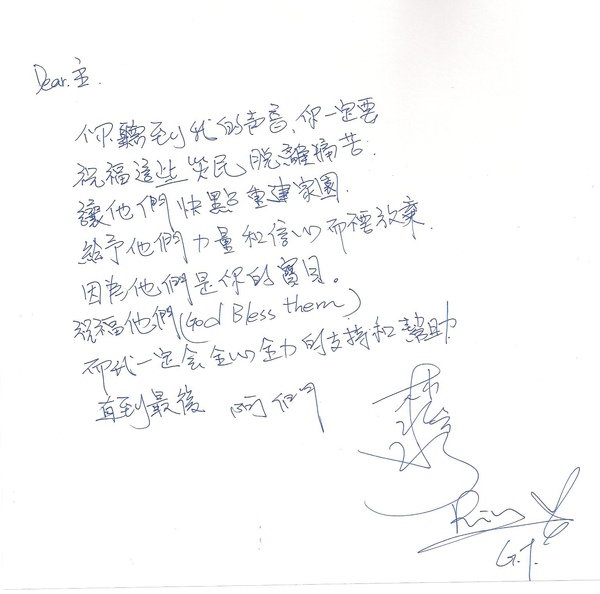 Dear.主.
你聽到我的声音,你一定要
祝福這些災民脫離痛苦.
讓他們快點重建家園.
給予他們力量和信心而不要放棄.
因為他們是你的寶貝。
祝福他們(God Bless them)
而我一定会全心全力的支持和幫助
直到最後 阿们
G.T.